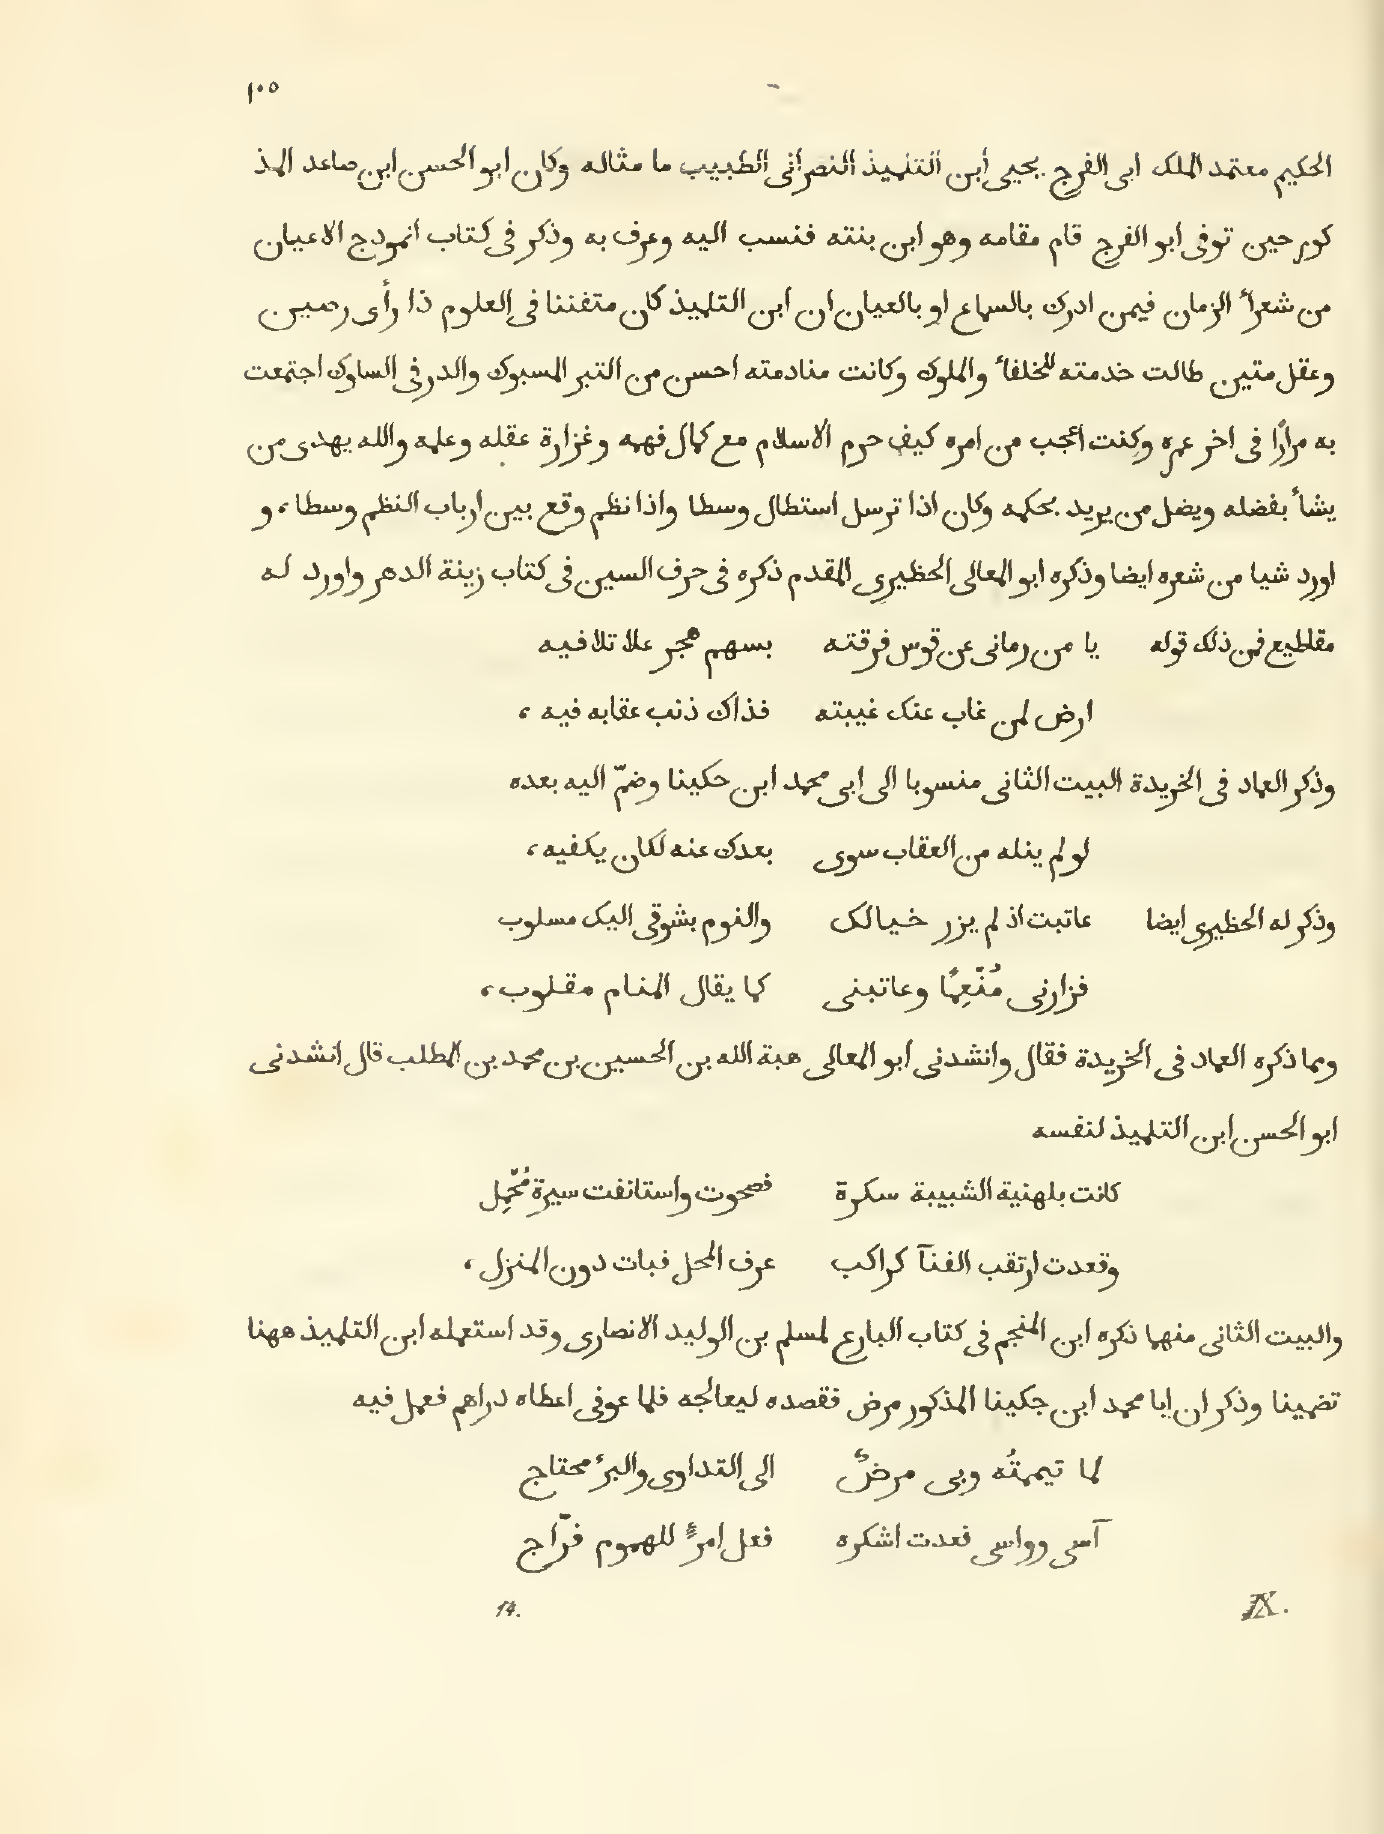 ١٠٥
الحكيم معتمد الملك ابى الفرج يحيى أبن التلميذ النصرانى الطبيب ما مثاله وكان ابو الحسن ابن صاعد المذ
كور حين توفى ابو الفرج قام مقامه وهو ابن بنته فنسب اليه وعرف به وذكر فى كتاب انموذج الاعيان
من شعرأ الزمان فيمن ادرك بالسماع او بالعيان ان ابن التلميذ كان متفننا فى العلوم ذا رأى رصين
وعقل متين طالت خدمته للخلفأ والملوك وكانت منادمته احسن من التبر المسبوك والدر فى السلوك اجتمعت
به مرارًا فى اخر عمره وكنت أعجب من امره كيف حرم الاسلام مع كمال فهمه وغزارة عقله وعلمه والله يهدى من
يشأ بفضله ويضل من يريد بحكمه وكان اذا ترسل استطال وسطا واذا نظم وقع بين ارباب النظم وسطا، و
اورد شيا من شعره ايضا وذكره ابو المعالى الحظيرى المقدم ذكره فى حرف السين فى كتاب زينة الدهر واورد له
مقاطيع فمن ذلك قوله يا من رمانى عن قوس فرقته بسهم هجر علا تلافيه
ارض لمن غاب عنك غيبته فذاك ذنب عقابه فيه،
وذكر العماد فى الخريدة البيت الثانى منسوبا الى ابى محمد ابن حكينا وضمّ اليه بعده
لو لم ينله من العقاب سوى بعدك عنه لكان يكفيه،
وذكر له الحظيرى ايضا عاتبت اذ لم يزر خيالك والنوم بشوقى اليك مسلوب
فزارنى مُنّعِمًا وعاتبنى كما يقال المنام مقلوب،
ومما ذكره العماد فى الخريدة فقال وانشدنى أبو المعالى هبة الله بن الحسين بن محمد بن المطلب قال انشدنى
ابو الحسن ابن التلميذ لنفسه
كانت بلهنية الشبيبة سكرة فصحوت واستانفت سيرة مُجّمِل
وقعدت ارتقب الفنآ كراكب عرف المحل فبات دون المنزل،
والبيت الثانى منهما ذكره ابن المنجم فى كتاب البارع لمسلم بن الوليد الانصارى وقد استعمله ابن التلميذ ههنا
تضمينا وذكر ان ابا محمد ابن جكينا المذكور مرض فقصده ليعالجه فلما عوفى اعطاه دراهم فعمل فيه
لما تيممتُه وبى مرضٌ الى التداوى والبرُ محتاج
آسى وواسى فعدت اشكره فعل امرءٍ للهموم فرّاج
IX. 14.